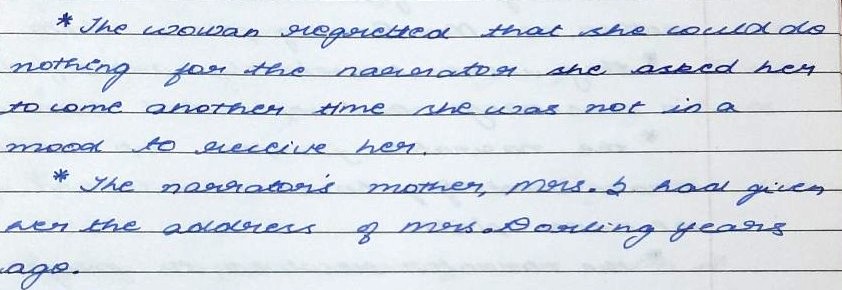 * The wowan regretted that she could do
nothing for the narrator she asked her
to come another time she was not in a
mood to receive her.
* The narrator's mother, Mrs. S had given
her the address of Mrs. Dorling years
ago.